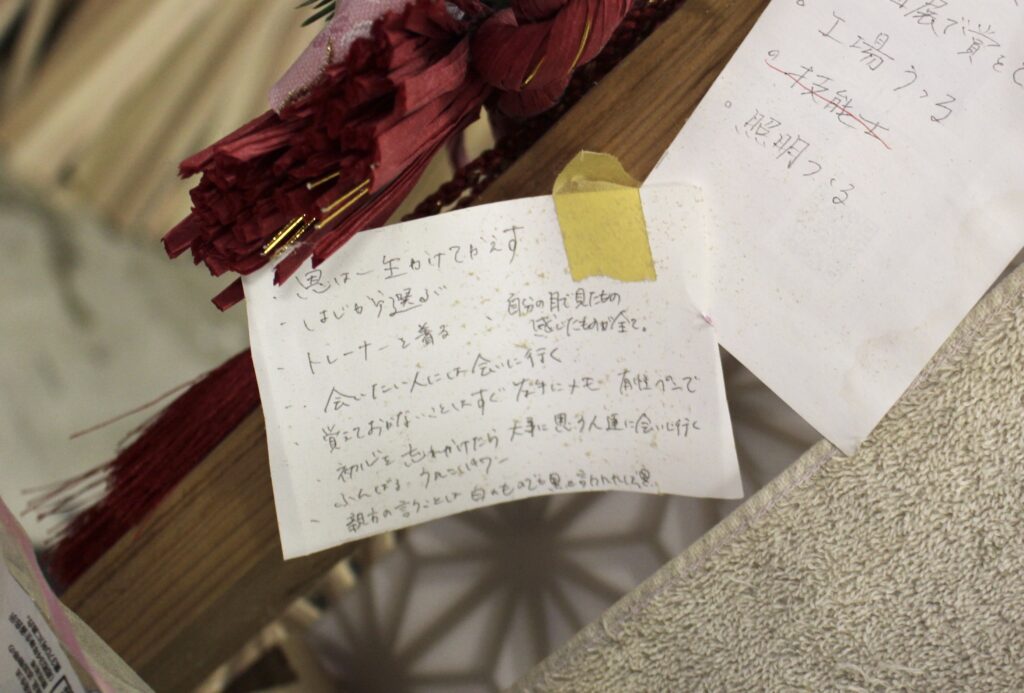 ・恩は一生かけてかえす
・はじから選ぶ
・トレーナーを着る
・自分の目で見たもの
感じたものが全て。
・会いたい人には会いに行く
・覚えておかないことはすぐ左手にメモ 有性ペンで
・初心を忘れかけたら 大事に思う人達に会いに行く
・ふんばる。
・親方の言うことは 白のものでも黒と言われたら黒
展で賞を
。工場うつる
。技能士
。照明つくる